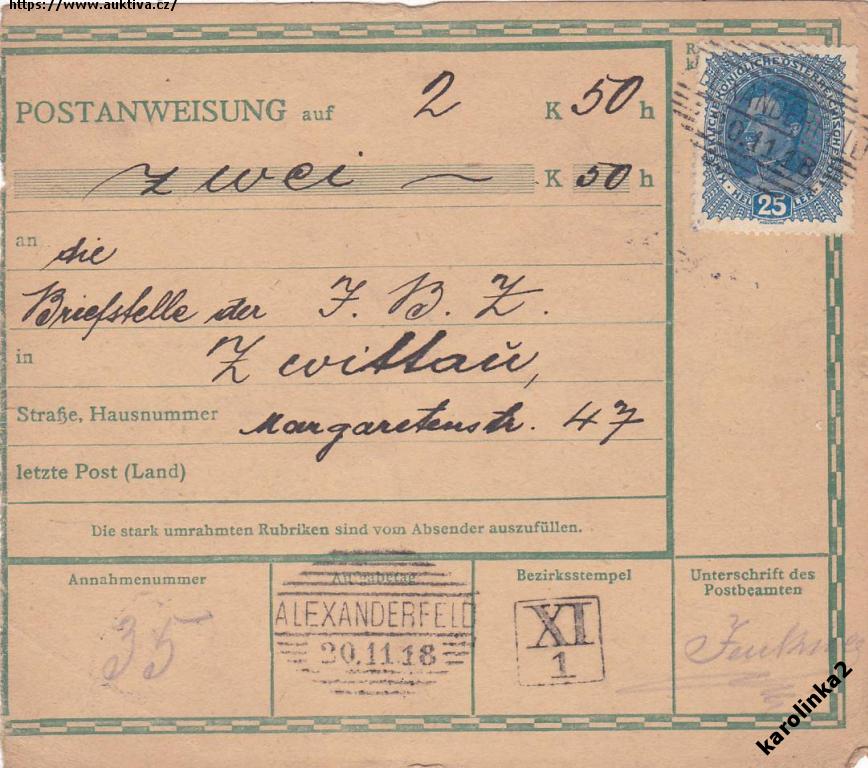 https://www.auktiva.cz/
POSTANWEISUNG auf 2 K 50 h
zwei K 50 h
an die
Briefstelle der I. B. Z.
in Zwittau,
Straße, Hausnummer Margaretenstr. 47
letzte Post (Land)
Die stark umrahmten Rubriken sind vom Absender auszufüllen.
25
Annahmenummer
35
Aufgabetag
ALEXANDERFELD
20.11.18
Bezirksstempel
XI
1
Unterschrift des
Postbeamten
karolinka2